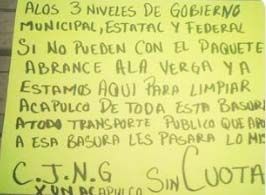 ALOS 3 NIVELES DE GOBIERNO
MUNICIPAL, ESTATAL Y FEDERAL
SI NO PUEDEN CON EL PAQUETE
ABRANCE ALA VERGA YA
ESTAMOS AQUI PARA LIMPIAR
ACAPULCO DE TODA ESTA BASURA
ATODO TRANSPORTE PUBLICO QUE APO
A ESA BASURA LES PASARA LO MIS
C.J.N.G SIN CUOTA
X UN ACAPULCO